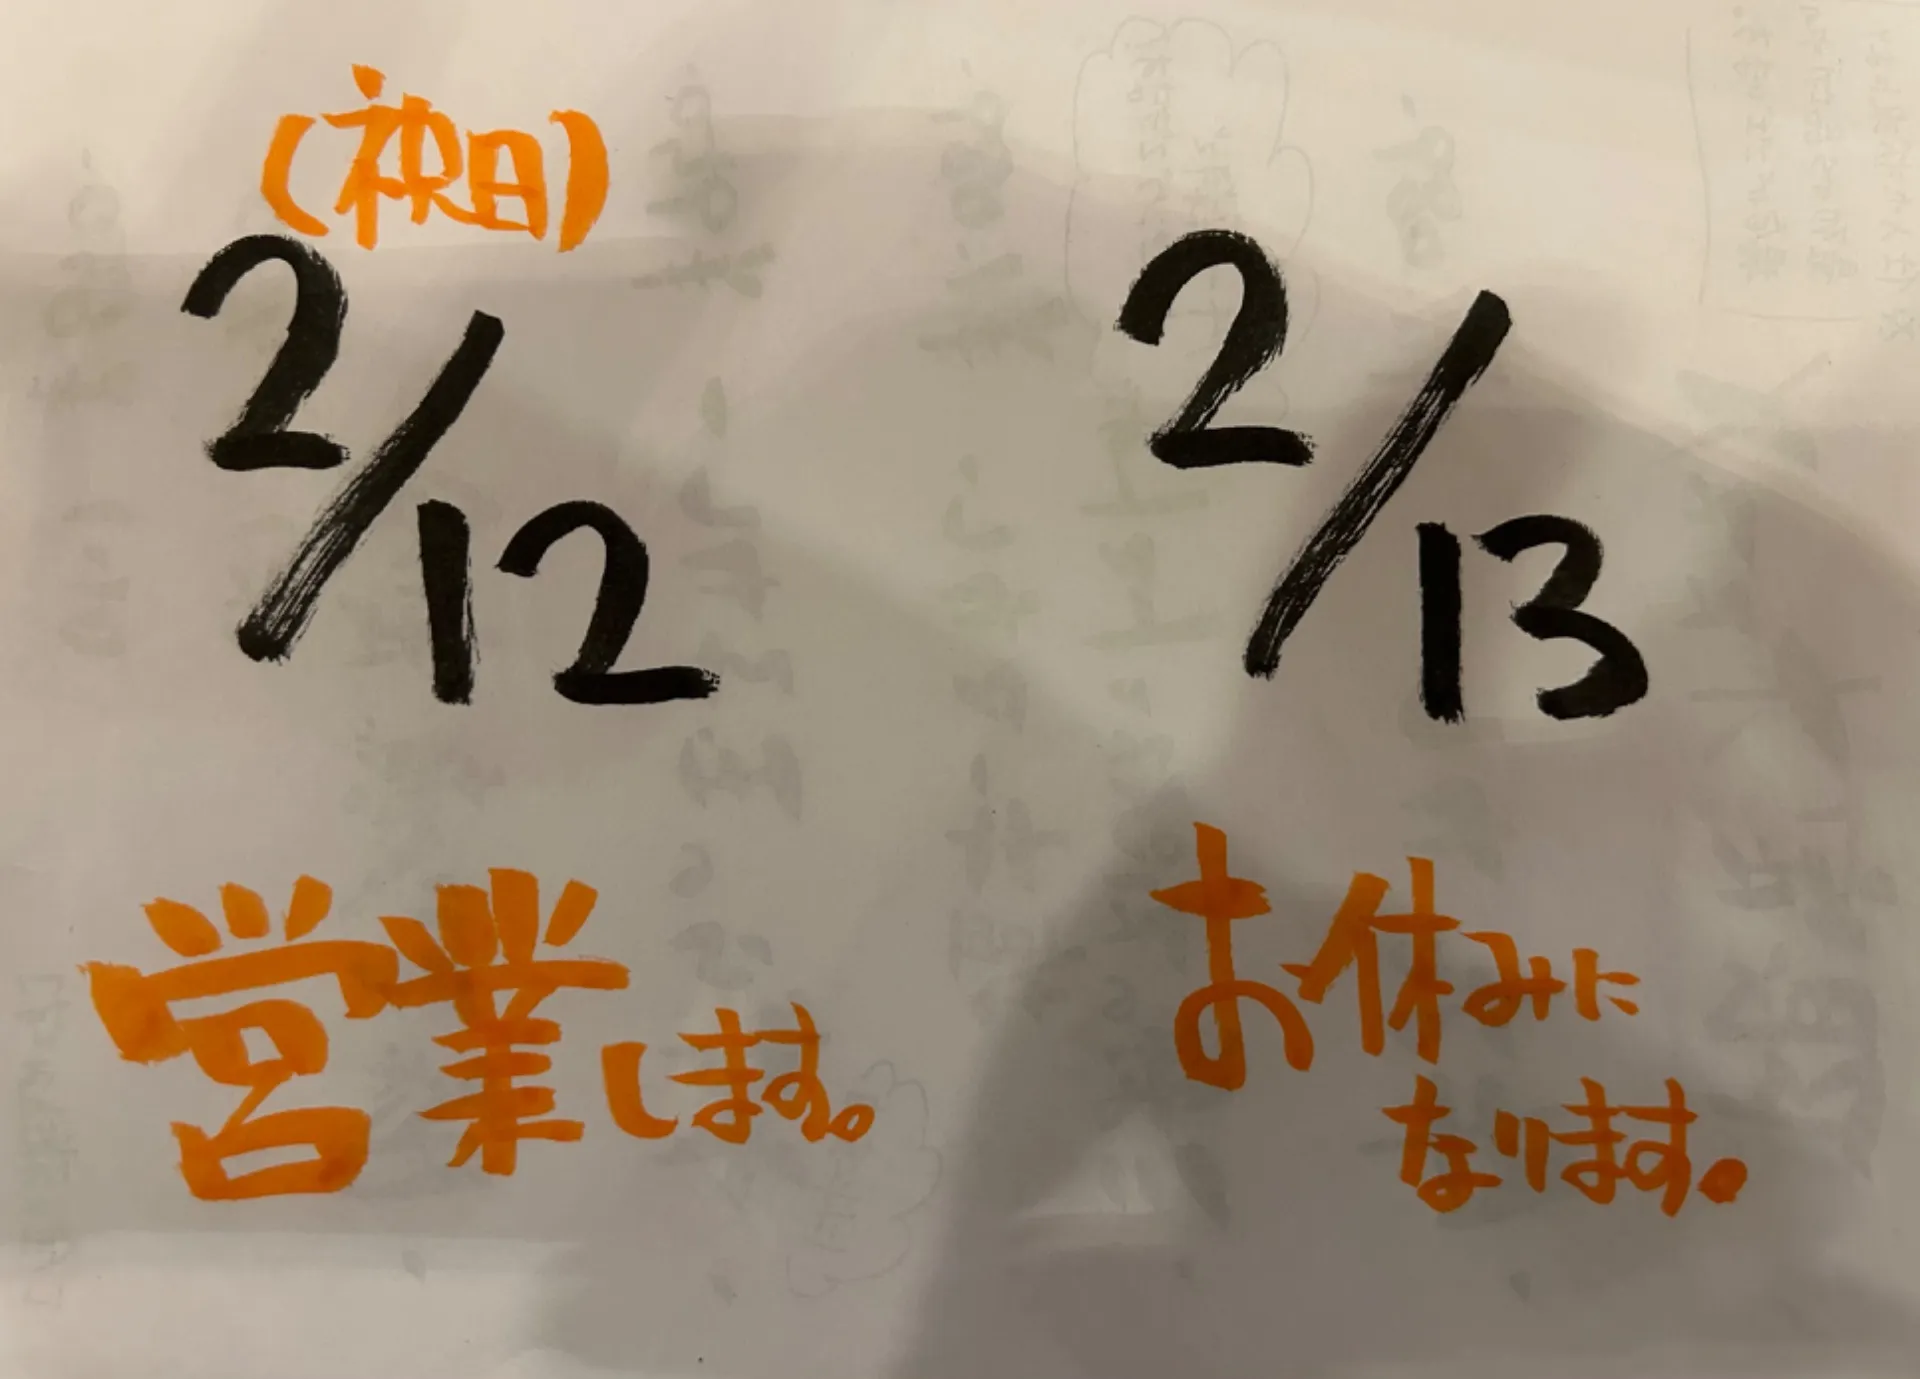 (祝日)
2/12
営業します。
2/13
お休みに
なります。